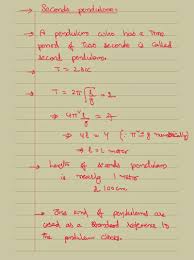 → Seconds pendulum:-
→ A pendulum which has a Time
period of Two seconds is called
second pendulum.
→ T = 2sec
→ T = 2π√(l/g) = 2
⇒ 4π² l/g = 4
⇒ 4l = 4 (∵ π² = g numerically)
⇒ l = 1 meter
→ Length of seconds pendulum
is nearly 1 meter
& 100cm
→ of pendulums are
used as a Standard reference to
the pendulum clocks.